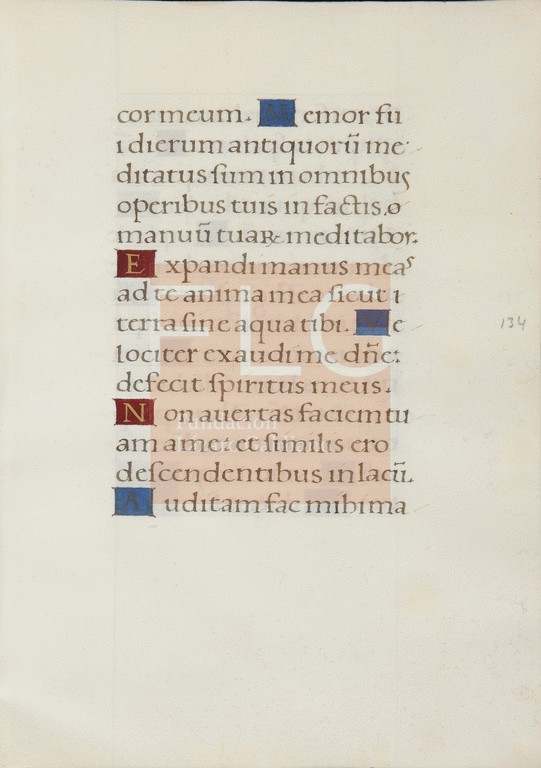 cor meum. Memor fu
i dierum antiquorū me
ditatus sum in omnibus
operibus tuis in factis.o
manuū tuaꝝ meditabor.
Expandi manus meas
ad te anima mea sicut t
terra sine aqua tibi. Ve
lociter exaudi me dn̄e:
defecit spiritus meus.
Non auertas faciem tu
am a me: et similis ero
descendentibus in lacū.
Auditam fac mihi ma
134
FLG
Fundación